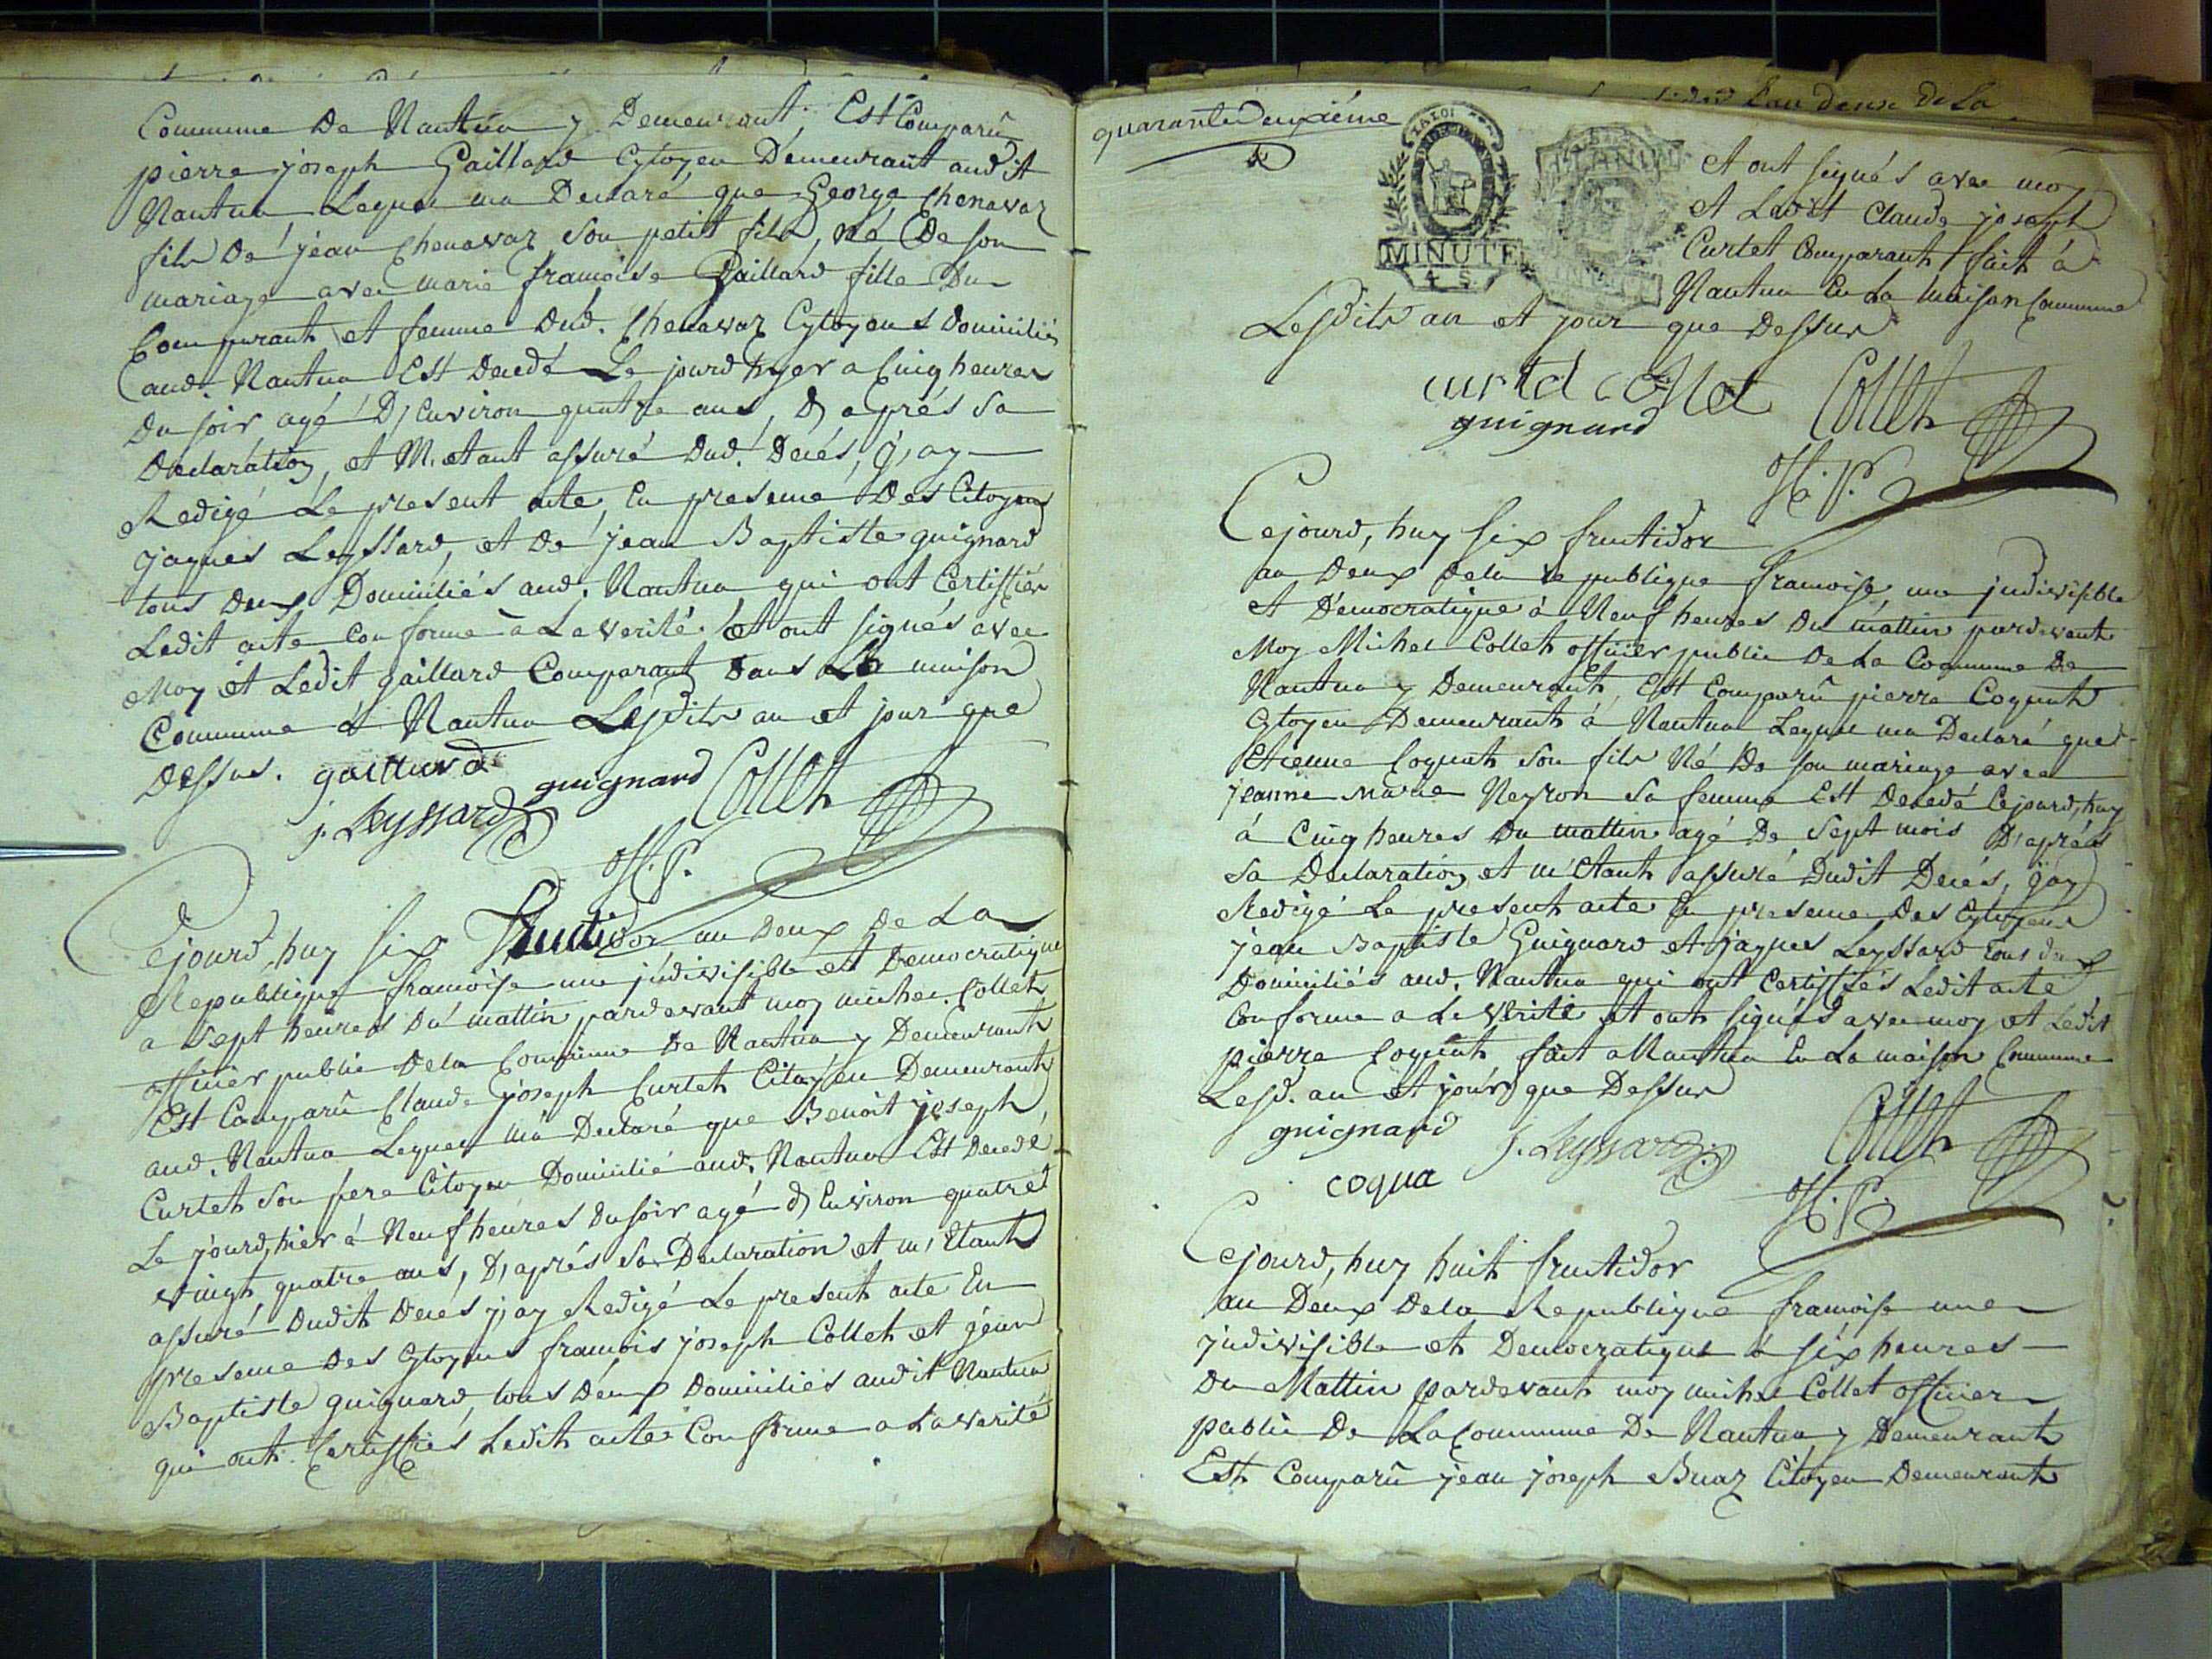 Commune De Nantua y Demeurant. Est Comparû
pierre joseph Gaillard Cytoyen Demeurant audit
Nantua Lequel ma Declaré que George Chenavaz
fils De jean Chenavaz son petit fils, né De son
mariage avec marie framoise Gaillard fille Du
Comparant et femme dud. Chenavaz Cytoyens domiciliés
aud. Nantua Est Decedé Le jourd hyer a Cinq heures
Du soir agé D, Environ quatre ans, D, aprés sa
Declaration, et M. etant assuré Dud. Decés, j, ay
Redigé Le present acte, En presence Des Citoyens
jaques Leyssard, et De jean Baptiste guignard
tous deux Domiciliés aud. Nantua qui ont Certiffiés
Ledit acte Conforme à La verité. et ont signés avec
Moy et Ledit gaillard Comparant Dans La maison
Commune à Nantua Lesdits an et jour que
Dessus. gaillard guignard Collet
j. Leyssard
Of. P.
Cejourd, huy six fructidor an Deux De La
Republique framoise une jndivisible et Democratique
a sept heures Du mattin pardevant moy michel Collet
officier public De la Commune De Nantua y Demeurant
Est Comparû Claude joseph Curtet Citoyen Demeurant
aud. Nantua Lequel mà Declaré que Benoit joseph
Curtet son frere Citoyen Domicilié aud. Nantua Est Decedé
Le jourd, hier à Neuf heures Du soir agé D, Environ quatre
vingt quatre ans, D, aprés sa Declaration et m, Etant
assuré Dudit Decés j, ay Redigé Le present acte En
presence Des Cytoyens framois joseph Collet et jean
Baptiste guignard, tous Deux Domiciliés audit Nantua
qui ont Certiffiés Ledit acte Conforme a La verité
quarante Deuxiéme
MINUTE
4 S
et ont signés avec moy
et Ledit Claude joseph
Curtet Comparant fait à
Nantua En La maison Commune
Lesdits an et jour que Dessus
curtet collet Collet
guignard
Of. P.
Cejourd, huy six fructidor
an Deux De la Republique framoise une jndivisible
et Democratique à Neuf heures Du mattin pardevant
Moy Michel Collet officier public De La Commune De
Nantua y Demeurant, Est Comparû pierre Coquat
Cytoyen Demeurant à Nantua Lequel ma Declaré que
Etienne Coquat son fils Né De son mariage avec
jeanne Marie Neyron sa femme Est Decedé Cejourd, huy
à Cinq heures Du mattin agé De Sept mois D, aprés
sa Declaration et m'Etant assuré Dudit Decés, j'ay
Redigé Le present acte En presence Des Cytoyens
jean Baptiste Guignard et jaques Leyssard tous deux
Domiciliés aud. Nantua qui ont Certiffiés Ledit acte
Conforme a La Verité et ont signés avec moy et Ledit
pierre Coquat fait a Nantua En La maison Commune
Lesd. an et jour que Dessus
guignard j. Leyssard Collet
coqua Of. P.
Cejourd, huy huit fructidor
an Deux De la Republique framoise une
jndivisible et Democratique à six heures
Du Mattin pardevant moy michel Collet officier
public De La Commune De Nantua y Demeurant
Est Comparû jean joseph Buaz Citoyen Demeurant